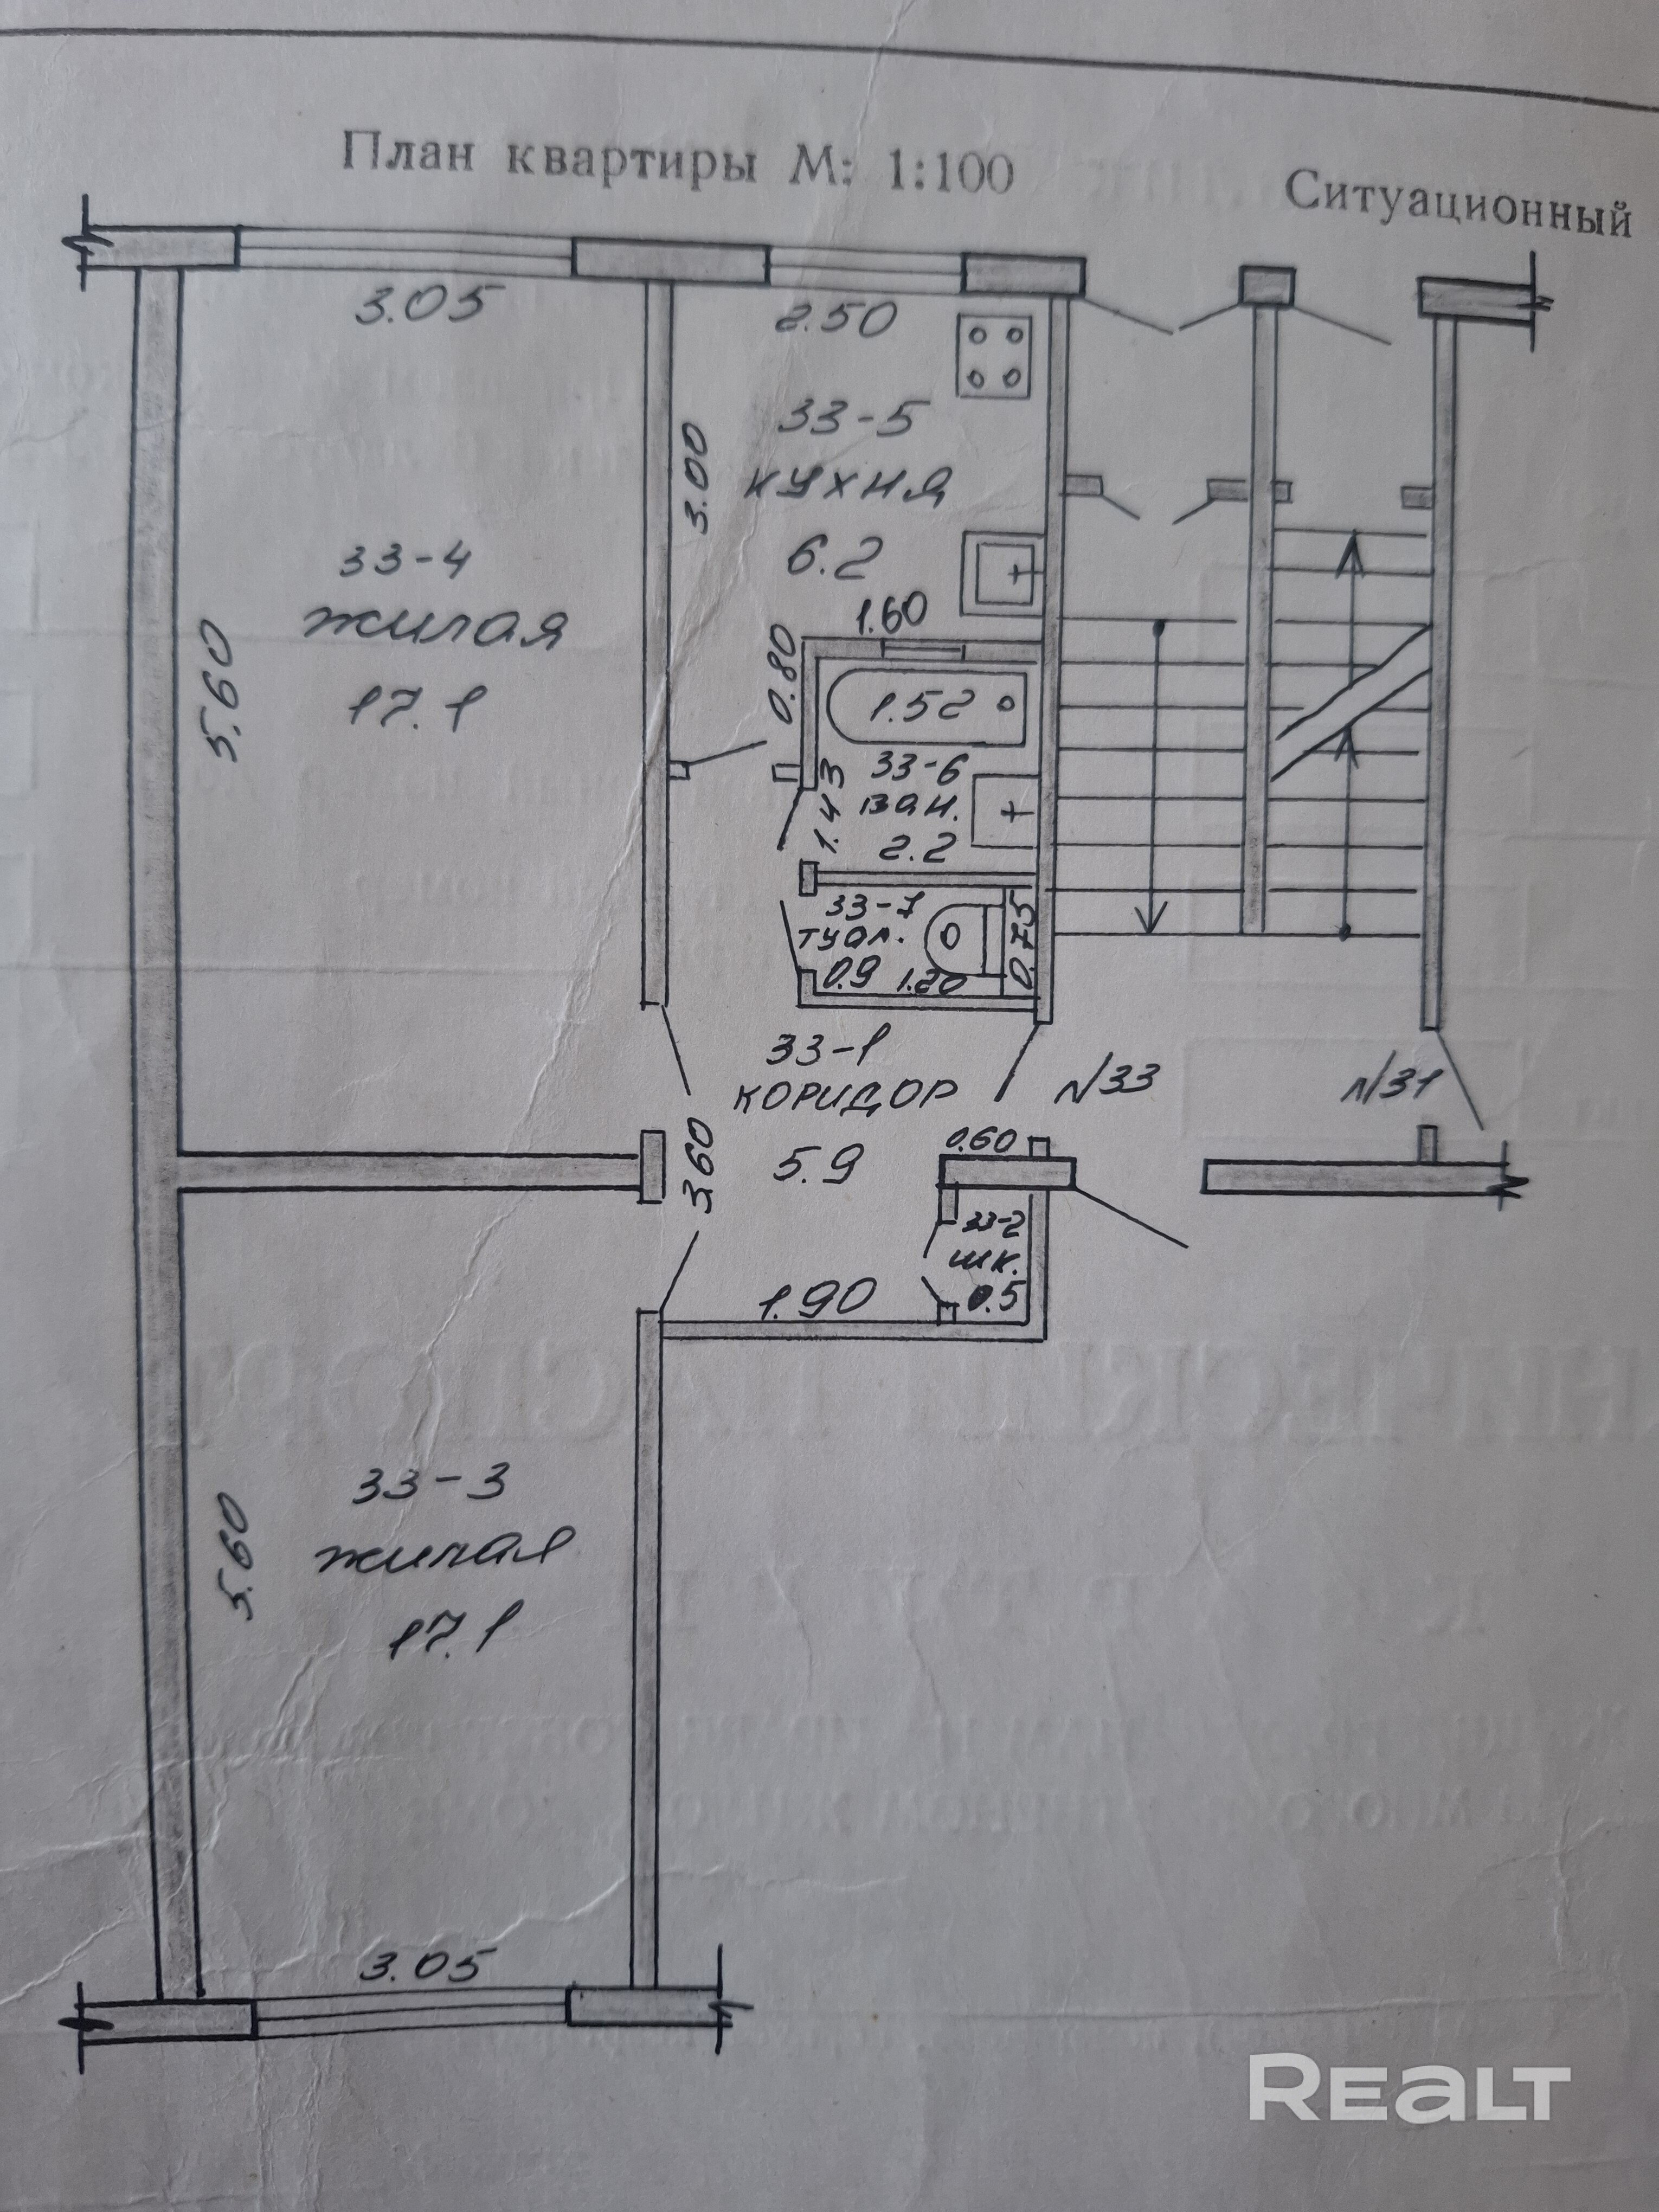 План квартиры М: 1:100
Ситуационный
3.05
2.50
33-5
кухня
6.2
3.00
33-4
жилая
17.1
5.60
1.60
0.80
1.52
33-6
ван.
2.2
1.43
33-7
туал.
0.9
1.20
0.75
33-1
коридор
5.9
3.60
N33
N31
0.60
33-2
шк.
0.5
1.90
33-3
жилая
17.1
5.60
3.05
REALT